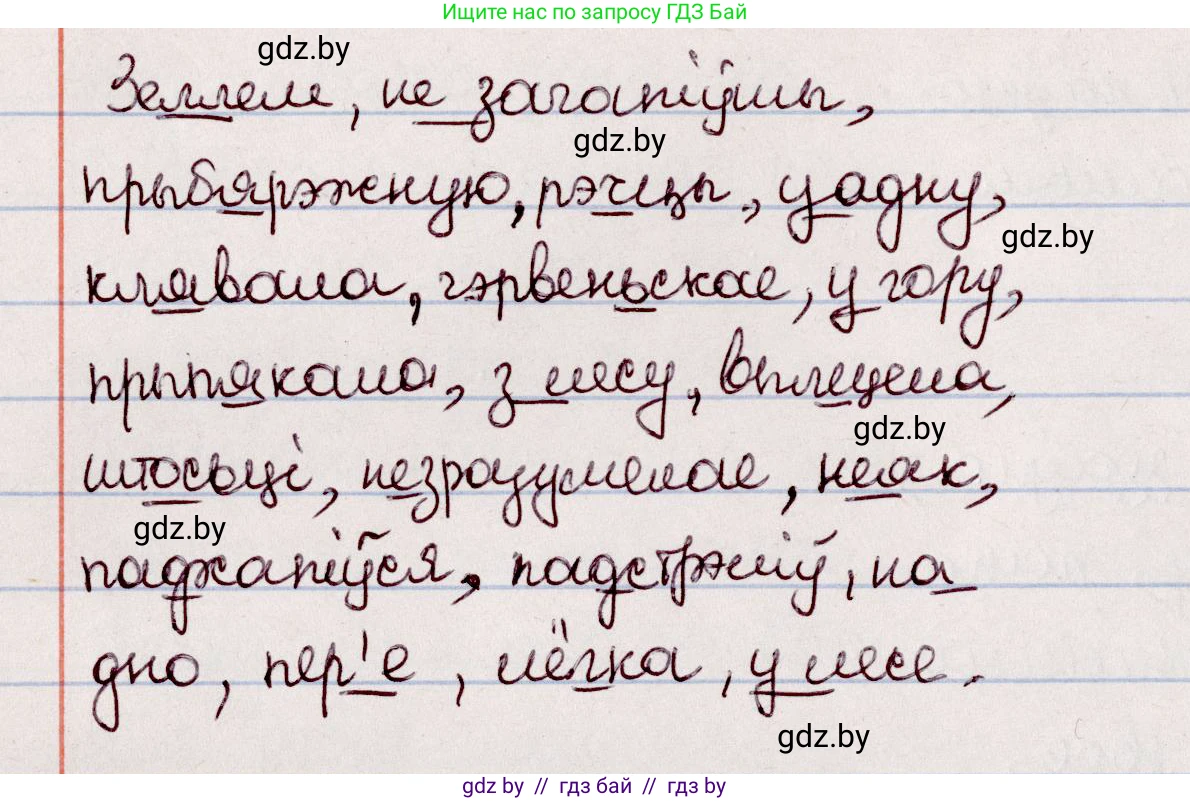 Ищите нас по запросу ГДЗ Бай
gdz.by
Зеллем, не загапіўшы,
gdz.by
прыбярэжную, рэчцы, у адну,
gdz.by
клявала, чэрвеньскае, у гору,
прыпякала, з лесу, вылецела,
gdz.by
штосьці, незразумелае, неяк,
gdz.by
падхапіўся, падстрэліў, на
дно, пер'е, лёгка, у лесе.
gdz.by
gdz by // гдз бай // гдз by